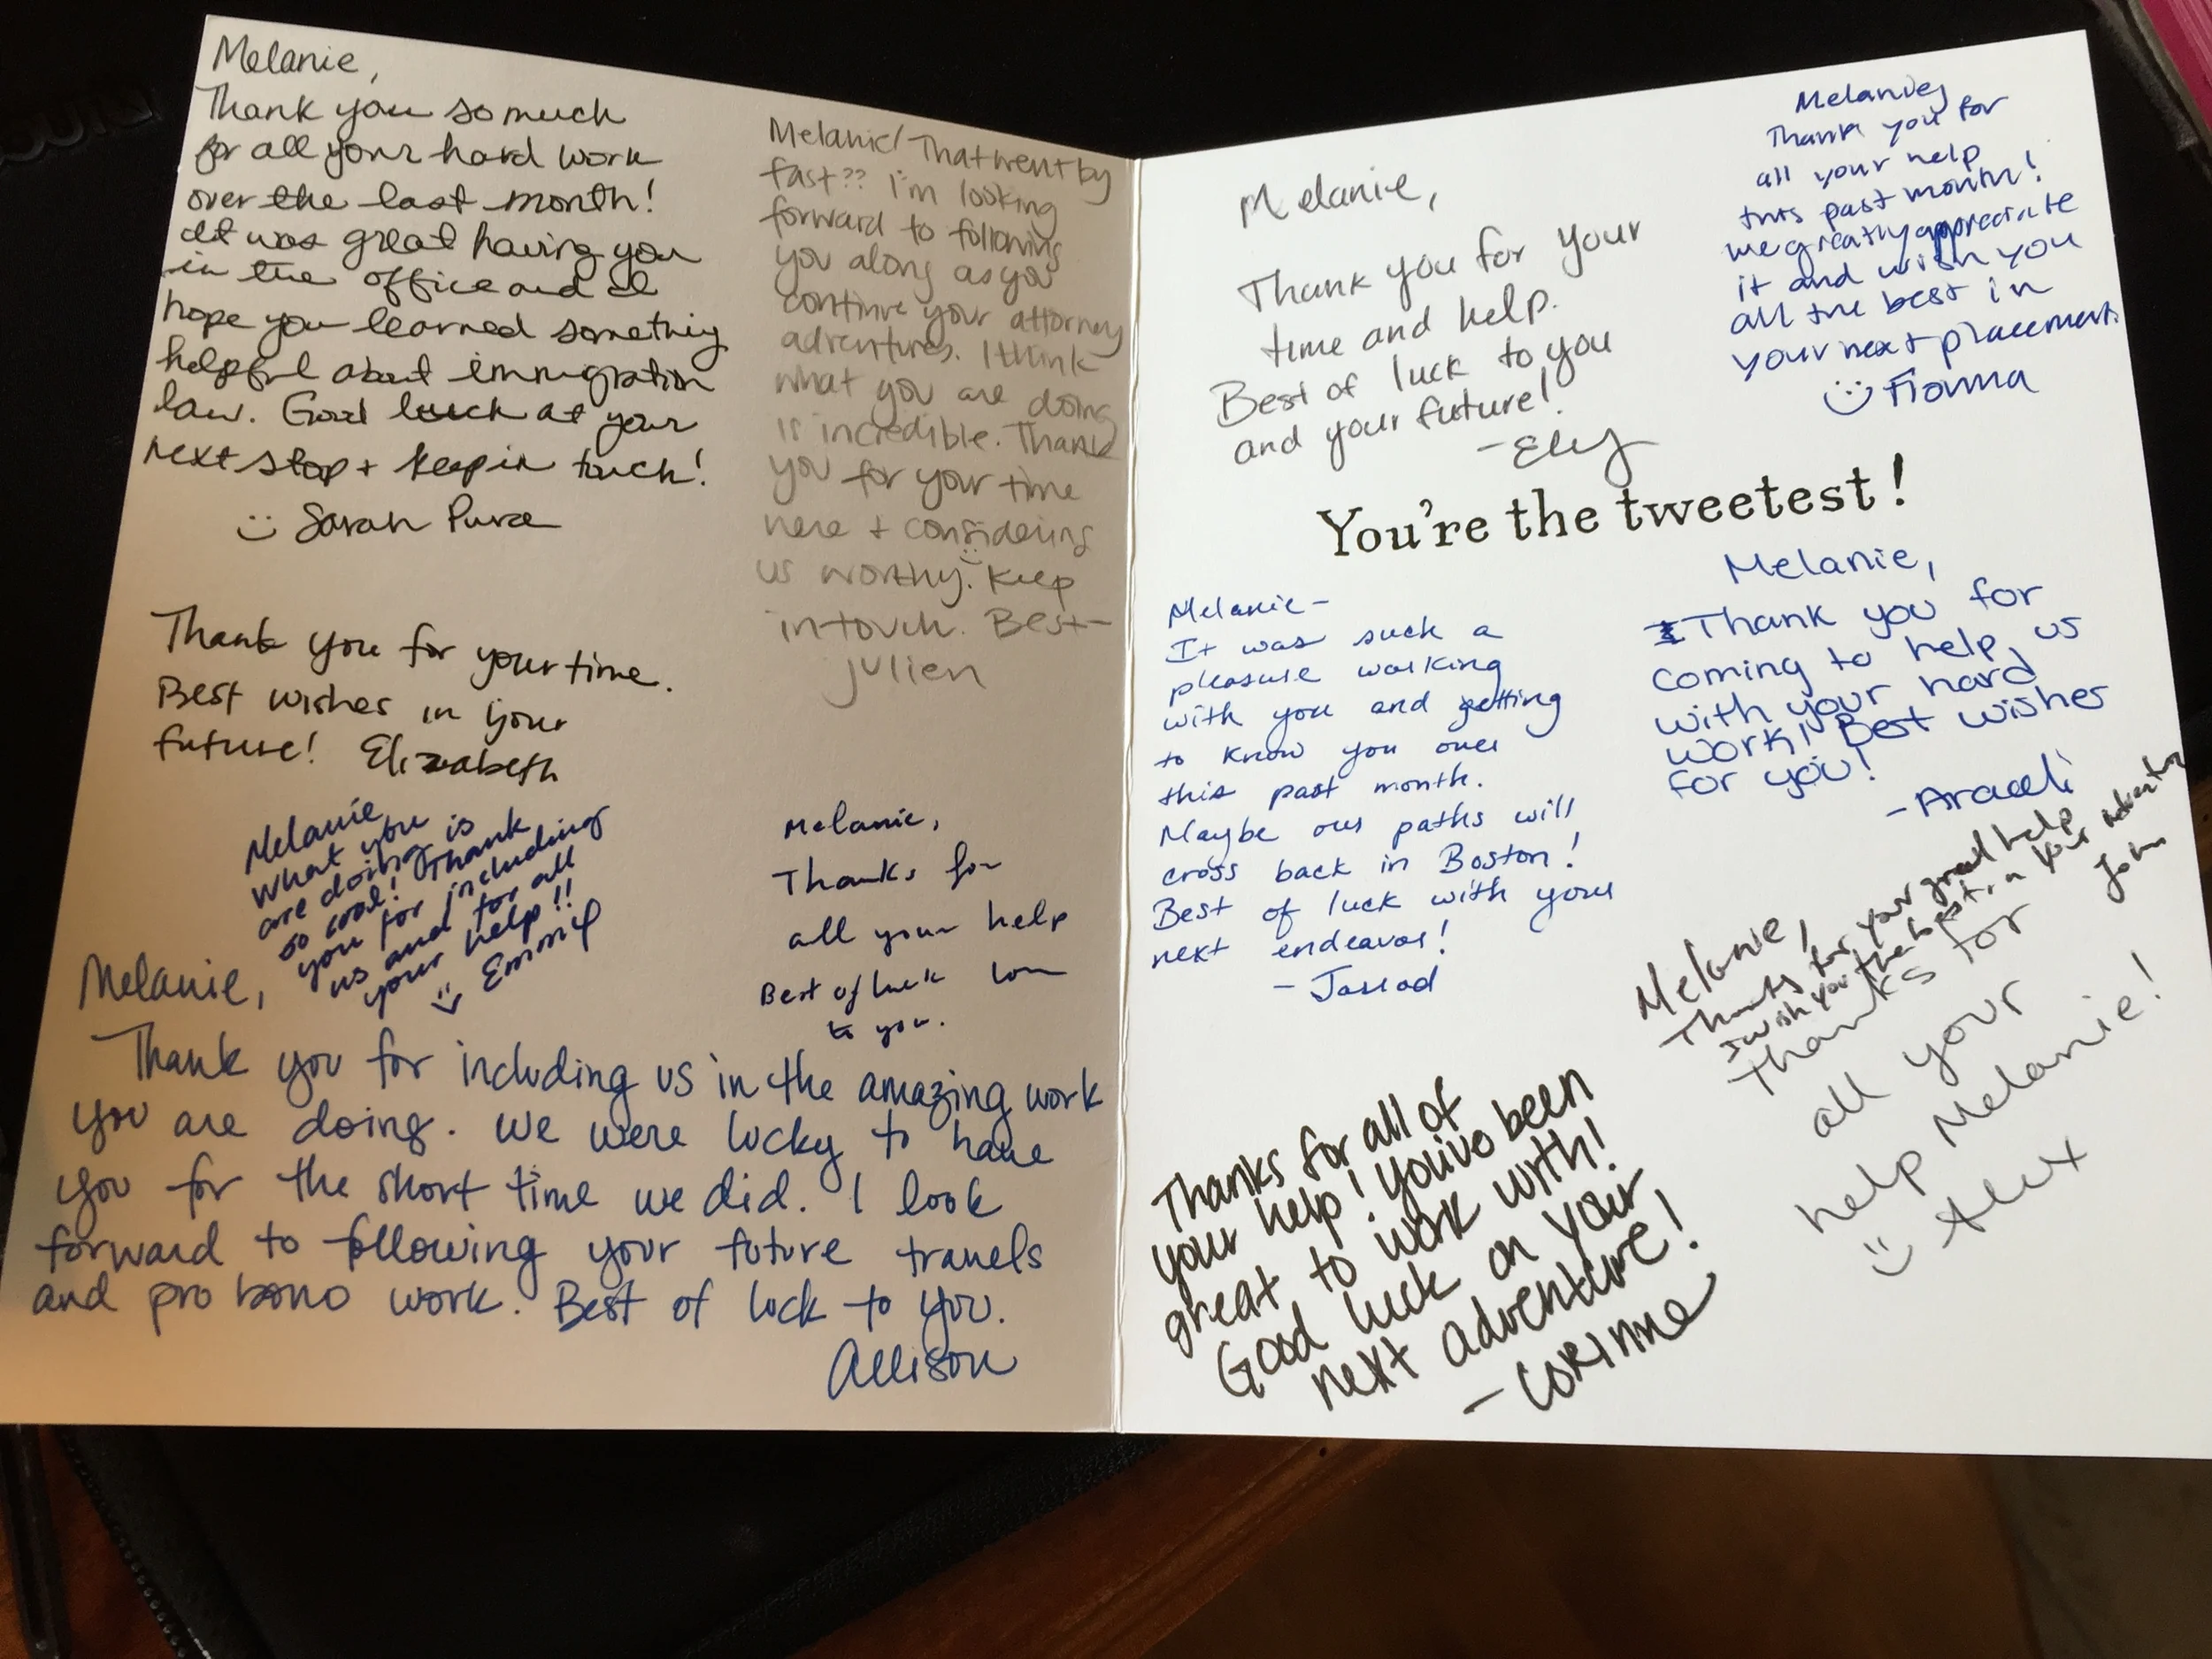 Melanie,
Thank you so much
for all your hard work
over the last month!
It was great having you
in the office and I
hope you learned something
helpful about immigration
law. Good luck at your
next stop + keep in touch!
Sarah
Melanie! That went by
fast?? I'm looking
forward to following
you along as you
continue your attorney
adventures. I think
what you are doing
is incredible. Thank
you for your time
here + considering
us worthy. Keep
in touch. Best-
Julien
Thank you for your time.
Best wishes in your
future! Elizabeth
Melanie
What you
are doing is
so cool! Thank
you for including
us and for all
your help!!
Melanie,
Thanks for
all your help
Best of luck
to you.
Melanie,
Thank you for including us in the amazing work
you are doing. We were lucky to have
you for the short time we did. I look
forward to following your future travels
and pro bono work. Best of luck to you.
Allison
Melanie,
Thank you for your
time and help.
Best of luck to you
and your future!
-Ely
Melanie,
Thank you for
all your help
this past month!
we greatly appreciate
it and wish you
all the best in
your next placement
Fionna
You're the tweetest!
Melanie-
It was such a
pleasure working
with you and getting
to know you over
this past month.
Maybe our paths will
cross back in Boston!
Best of luck with your
next endeavor!
- Jarrod
Melanie,
Thank you for
coming to help us
with your hard
work! Best wishes
for you!
-Araceli
Melanie,
Thanks for your great help
I wish you the best in your adventure
John
Thanks for
all your
help Melanie!
Alex
Thanks for all of
your help! You've been
great to work with!
Good luck on your
next adventure!
- Corinne